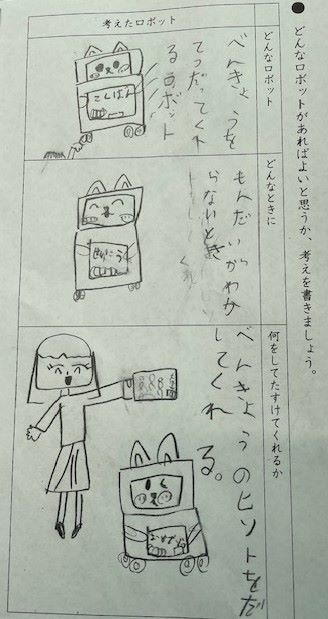 ●どんなロボットがあればよいと思うか、考えを書きましょう。
考えたロボット
どんなロボット
べんきょうを
てつだってくれ
るロボット
どんなときに
もんだいがわか
らないとき
何をしてたすけてくれるか
べんきょうのヒソトをだ
してくれる。
こんばん